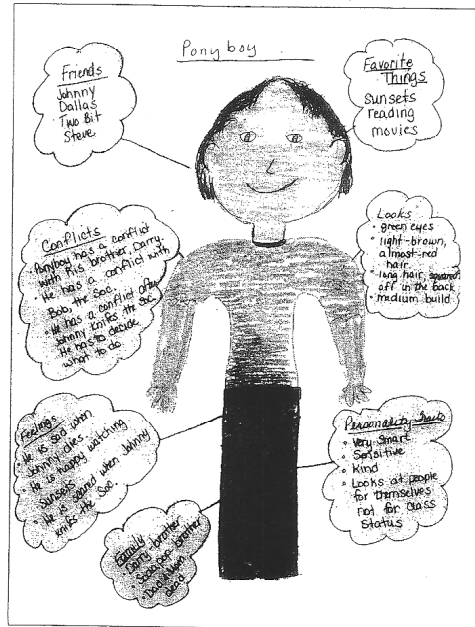 Ponyboy
Friends
Johnny
Dallas
Two Bit
Steve
Favorite
Things
sunsets
reading
movies
Conflicts
• Ponyboy has a conflict
with his brother Darry.
• He has a conflict with
Bob, the Soc.
• He has a conflict after
Johnny knifs the Soc.
He has to decide
what to do
Looks
• green eyes
• light-brown,
almost-red
hair
• long hair, squared
off in the back
• medium build
Feelings
• He is sad when
Johnny dies
• He is happy watching
sunsets
• He is scared when Johnny
knifs the Soc.
Personality Traits
• Very smart
• Sensitive
• Kind
• Looks at people
for themselves
not for class
status
Family
Darry brother
• Sodapop brother
• Dad & Mom
dead